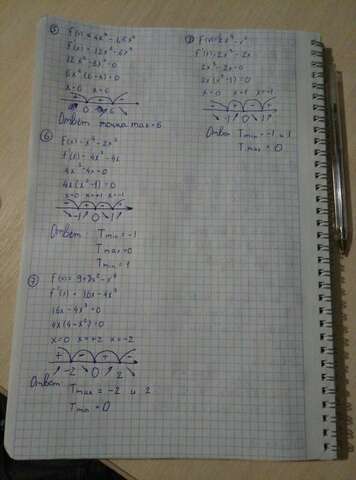 ⑤
f'(x) = 12x² - 6x³
12x² - 6x³ = 0
x=0 x=6
+ + -
0 6
Ответ точка max = 6
⑥ f(x) = x⁴ - 2x²
f'(x) = 4x³ - 4x
4x³ - 4x = 0
4x(x² - 1) = 0
x=0 x=+1 x=-1
- + - +
-1 0 1
Ответ: Tmin = -1
Tmax = 0
Tmin = 1
⑦
f(x) = 9+8x² - x⁴
f'(x) = 16x - 4x³
16x - 4x³ = 0
4x(4-x²) = 0
x=0 x=+2 x=-2
+ - + -
-2 0 2
Ответ
Tmax = -2 и 2
Tmin = 0
2x³ - 2x = 0
2x(x² - 1) = 0
x=0 x=1 x=-1
- + - +
-1 0 1
Ответ Tmin = -1 и 1
Tmax = 0